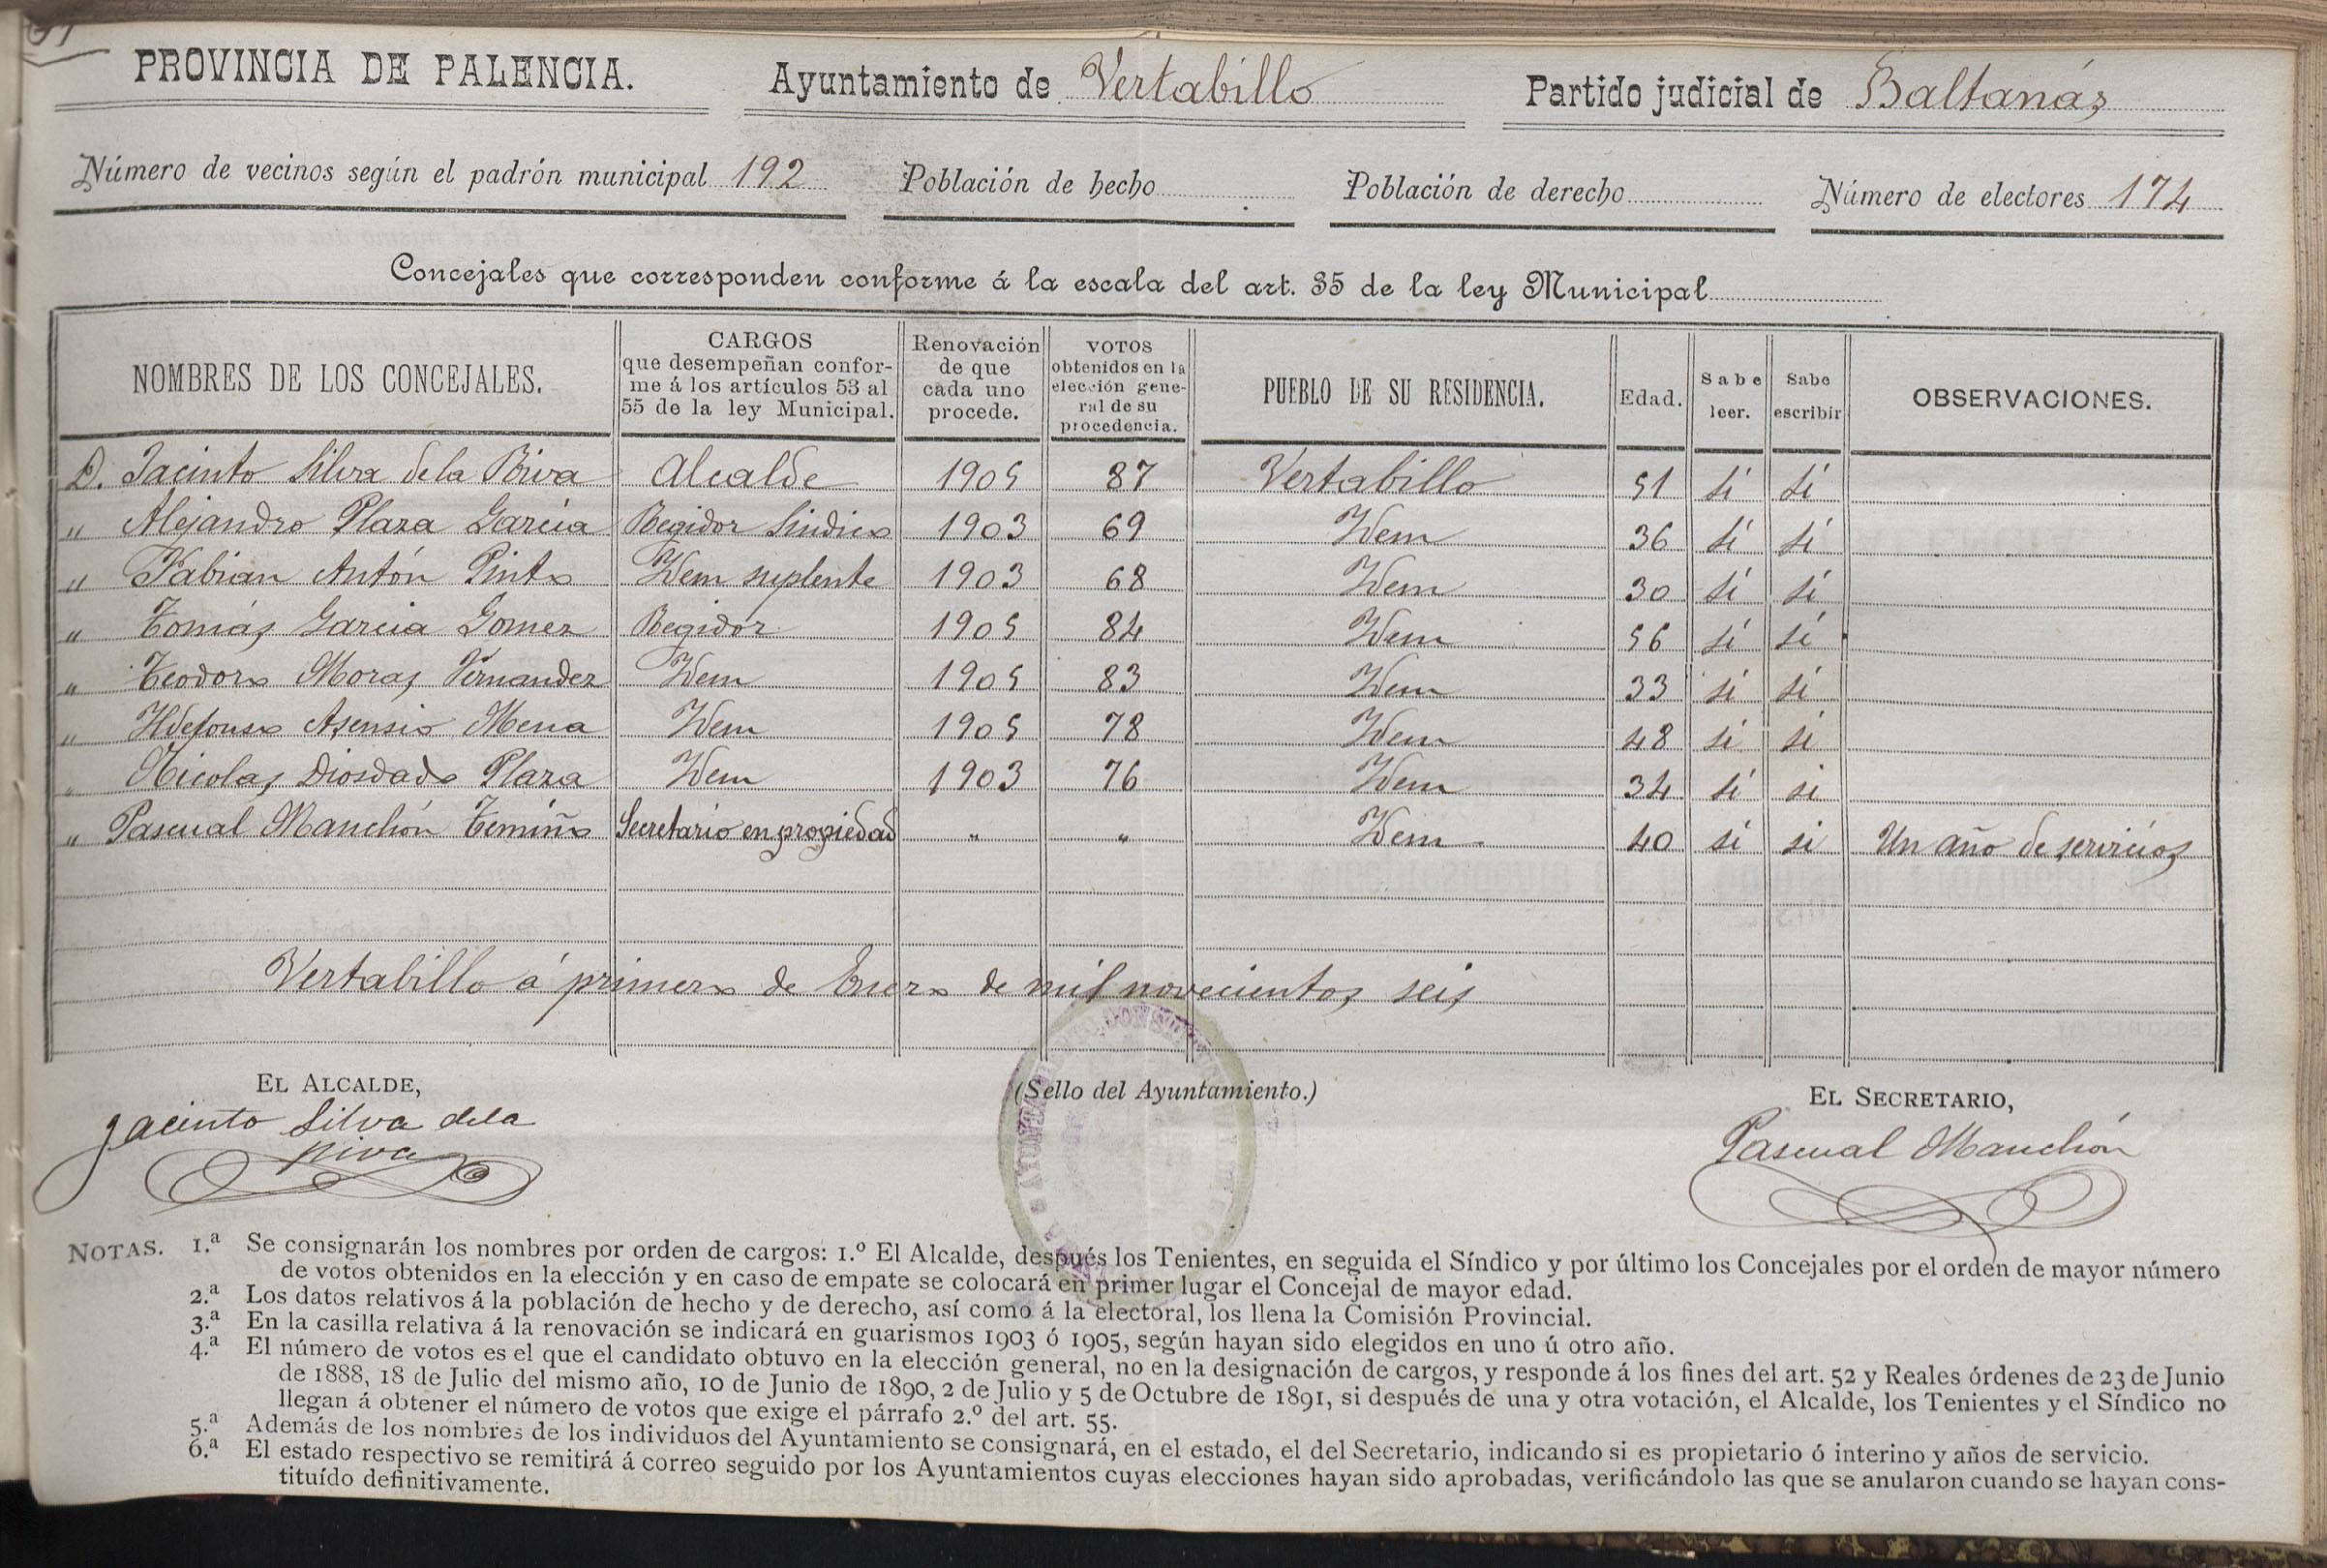 PROVINCIA DE PALENCIA. Ayuntamiento de Vertabillo Partido judicial de Baltanás
Número de vecinos según el padrón municipal 192 Población de hecho Población de derecho Número de electores 174
Concejales que corresponden conforme á la escala del art. 35 de la ley Municipal
NOMBRES DE LOS CONCEJALES. CARGOS que desempeñan conforme á los artículos 53 al 55 de la ley Municipal. Renovación de que cada uno procede. VOTOS obtenidos en la elección general de su procedencia. PUEBLO DE SU RESIDENCIA. Edad. Sabe leer. Sabe escribir OBSERVACIONES.
D. Jacinto Silva de la Riva Alcalde 1905 87 Vertabillo 51 si si
" Alejandro Plaza Garcia Regidor Sindico 1903 69 Idem 36 si si
" Fabian Antón Pinto Idem suplente 1903 68 Idem 30 si si
" Tomás Garcia Gomez Regidor 1905 84 Idem 56 si si
" Teodoro Moras Fernandez Idem 1905 83 Idem 33 si si
" Ildefonso Asensio Mena Idem 1905 78 Idem 48 si si
" Nicolas Diosdado Plaza Idem 1903 76 Idem 34 si si
" Pascual Manchón Temiño Secretario en propiedad " " Idem 40 si si Un año de servicios
Vertabillo á primero de Enero de mil novecientos seis
EL ALCALDE, (Sello del Ayuntamiento.) EL SECRETARIO,
Jacinto Silva dela
Riva
Pascual Manchón
NOTAS. 1.ª Se consignarán los nombres por orden de cargos: 1.º El Alcalde, después los Tenientes, en seguida el Síndico y por último los Concejales por el orden de mayor número
de votos obtenidos en la elección y en caso de empate se colocará en primer lugar el Concejal de mayor edad.
2.ª Los datos relativos á la población de hecho y de derecho, así como á la electoral, los llena la Comisión Provincial.
3.ª En la casilla relativa á la renovación se indicará en guarismos 1903 ó 1905, según hayan sido elegidos en uno ú otro año.
4.ª El número de votos es el que el candidato obtuvo en la elección general, no en la designación de cargos, y responde á los fines del art. 52 y Reales órdenes de 23 de Junio
de 1888, 18 de Julio del mismo año, 10 de Junio de 1890, 2 de Julio y 5 de Octubre de 1891, si después de una y otra votación, el Alcalde, los Tenientes y el Síndico no
llegan á obtener el número de votos que exige el párrafo 2.º del art. 55.
5.ª Además de los nombres de los individuos del Ayuntamiento se consignará, en el estado, el del Secretario, indicando si es propietario ó interino y años de servicio.
6.ª El estado respectivo se remitirá á correo seguido por los Ayuntamientos cuyas elecciones hayan sido aprobadas, verificándolo las que se anularon cuando se hayan cons-
tituído definitivamente.